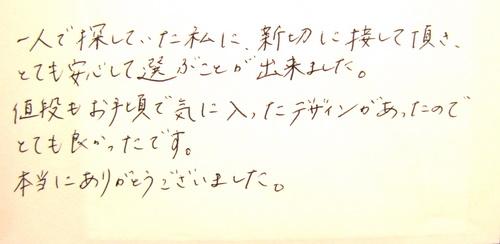 一人で探していた私に、新切に接して頂き、
とても安心して選ぶことが出来ました。
値段もお手頃で気に入ったデザインがあったので
とても良かったです。
本当にありがとうございました。